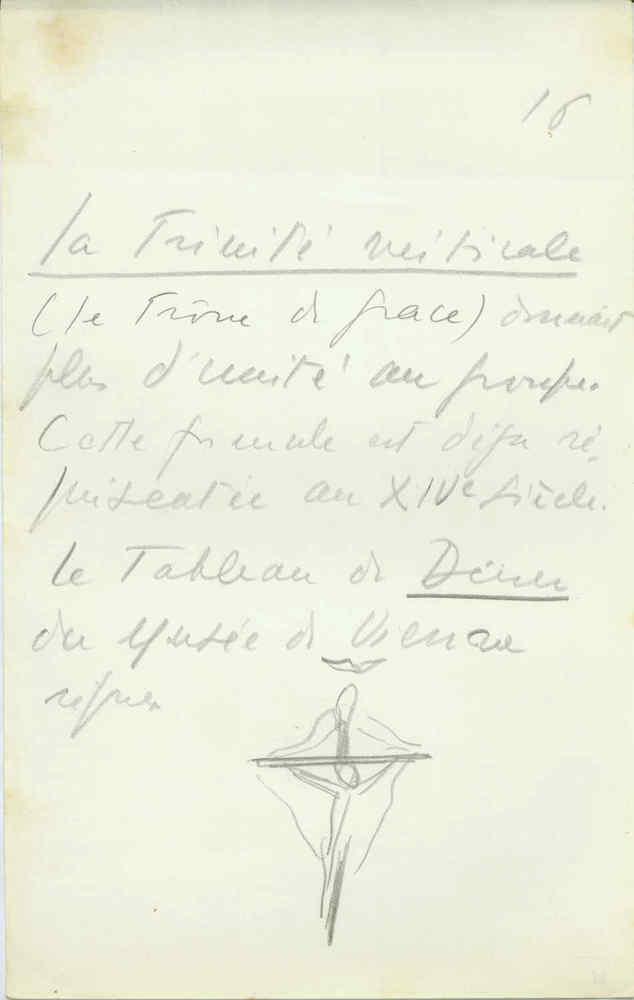 16
La Trinité verticale
(le Trône de grace) donnait
plus d'unité au groupe.
Cette formule est déja re-
présentée au XIVe siècle.
Le Tableau de Dürer
du Musée de Vienne